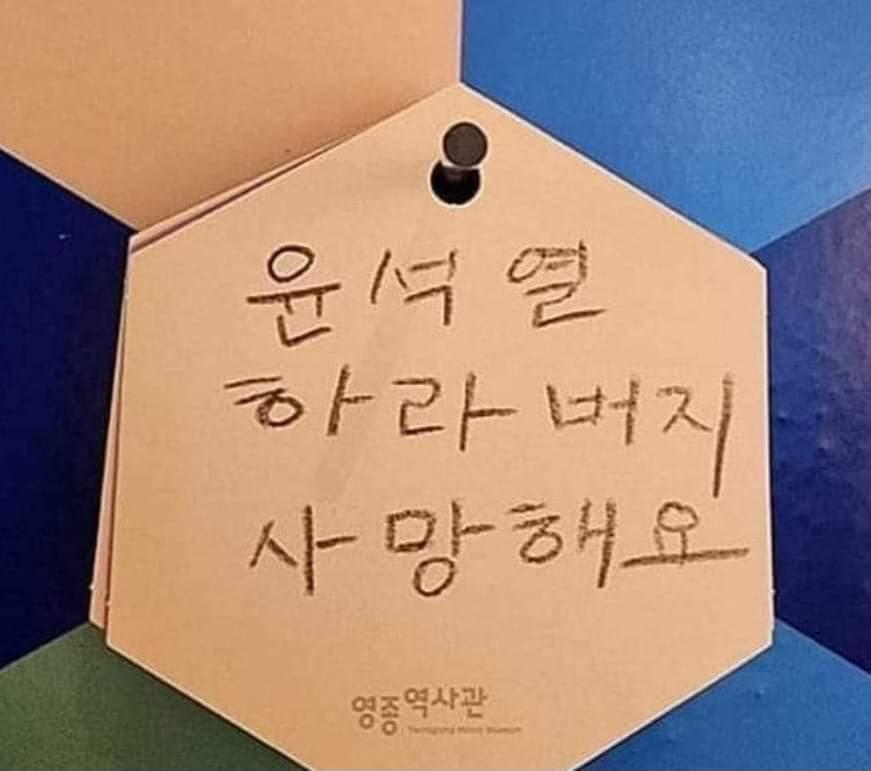 윤석열
하라버지
사망해요
영종역사관